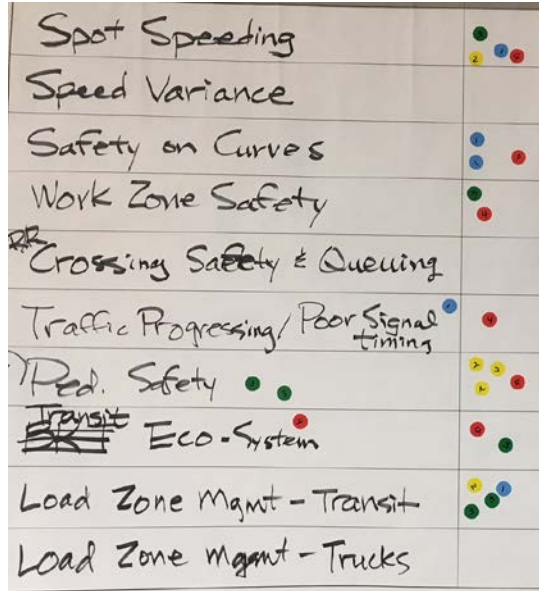 Spot Speeding
Speed Variance
Safety on Curves
Work Zone Safety
RR
Crossing Safety & Queuing
Traffic Progressing / Poor Signal
timing
Ped. Safety
Transit
Eco-System
Load Zone Mgmt - Transit
Load Zone Mgmt - Trucks